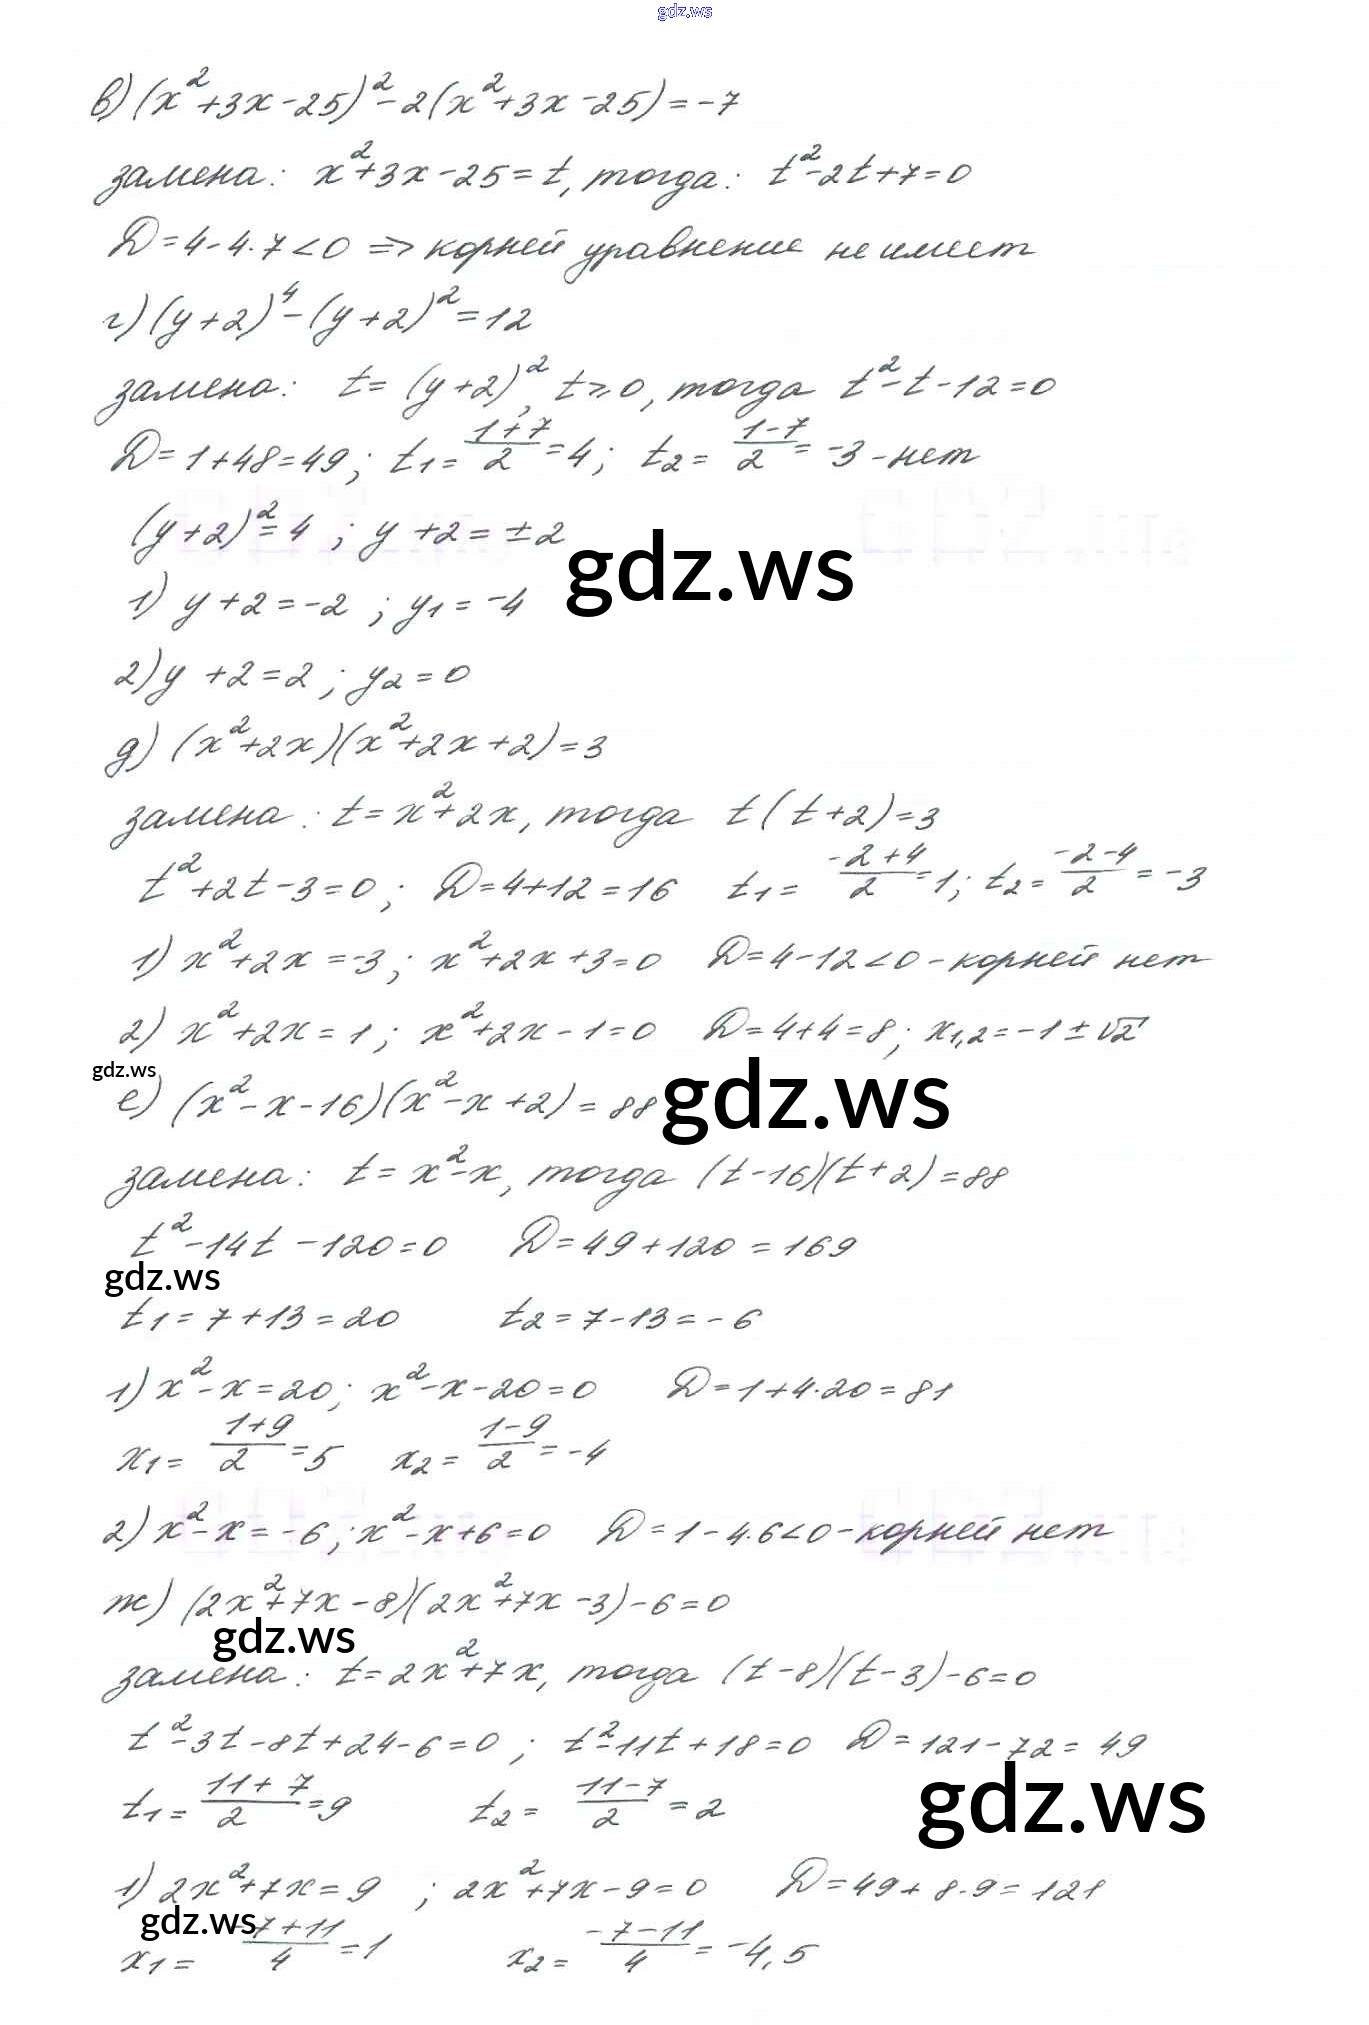 gdz.ws
в) (x²+3x-25)²-2(x²+3x-25)=-7
замена: x²+3x-25=t, тогда: t²-2t+7=0
D=4-4·7<0 => корней уравнение не имеет
г) (y+2)⁴-(y+2)²=12
замена: t=(y+2)², t⩾0, тогда t²-t-12=0
D=1+48=49; t1=(1+7)/2=4; t2=(1-7)/2=-3-нет
(y+2)²=4 ; y+2=±2
gdz.ws
1) y+2=-2 ; y1=-4
2) y+2=2 ; y2=0
д) (x²+2x)(x²+2x+2)=3
замена: t=x²+2x, тогда t(t+2)=3
t²+2t-3=0; D=4+12=16 t1=(-2+4)/2=1; t2=(-2-4)/2=-3
1) x²+2x=-3; x²+2x+3=0 D=4-12<0-корней нет
2) x²+2x=1; x²+2x-1=0 D=4+4=8; x1,2=-1±√2
gdz.ws
е) (x²-x-16)(x²-x+2)=88
gdz.ws
замена: t=x²-x, тогда (t-16)(t+2)=88
t²-14t-120=0 D=49+120=169
gdz.ws
t1=7+13=20 t2=7-13=-6
1) x²-x=20; x²-x-20=0 D=1+4·20=81
x1=(1+9)/2=5 x2=(1-9)/2=-4
2) x²-x=-6; x²-x+6=0 D=1-4·6<0-корней нет
ж) (2x²+7x-8)(2x²+7x-3)-6=0
gdz.ws
замена: t=2x²+7x, тогда (t-8)(t-3)-6=0
t²-3t-8t+24-6=0 ; t²-11t+18=0 D=121-72=49
t1=(11+7)/2=9 t2=(11-7)/2=2
gdz.ws
1) 2x²+7x=9 ; 2x²+7x-9=0 D=49+8·9=121
gdz.ws
x1=(-7+11)/4=1 x2=(-7-11)/4=-4,5